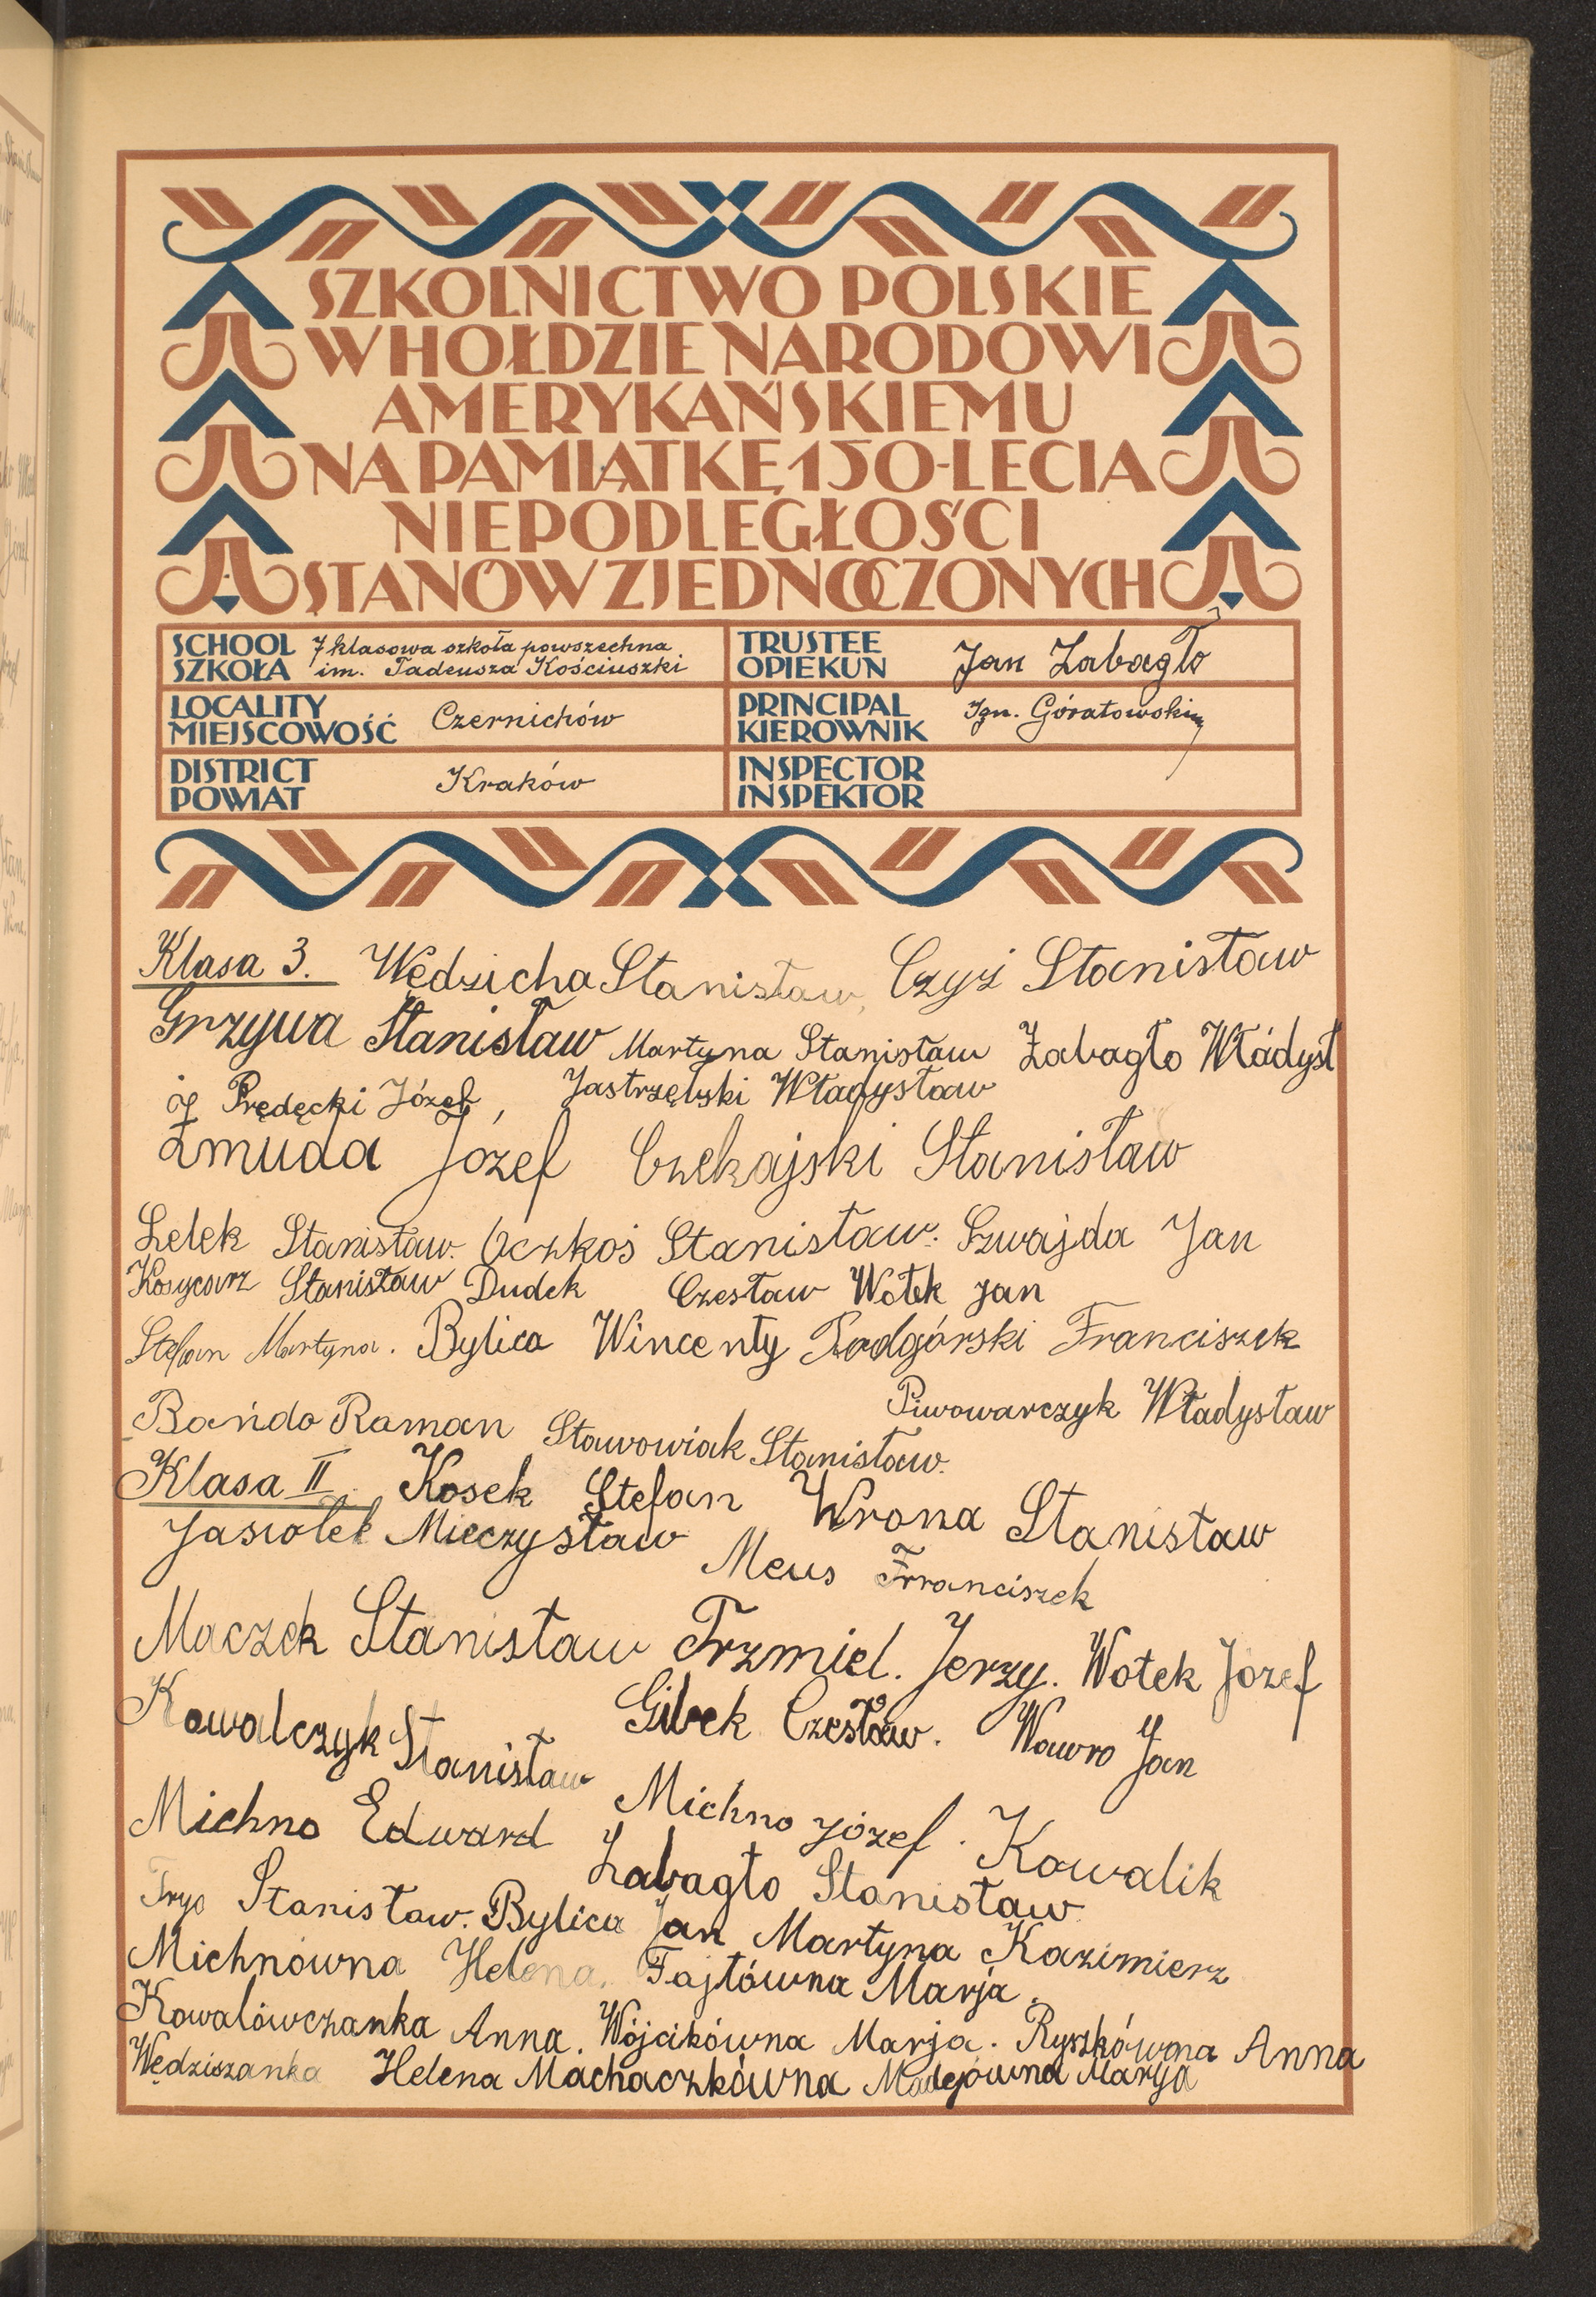 SZKOLNICTWO POLSKIE
W HOŁDZIE NARODOWI
AMERYKAŃSKIEMU
NA PAMIĄTKĘ 150-LECIA
NIEPODLEGŁOŚCI
STANÓW ZJEDNOCZONYCH
SCHOOL
SZKOŁA
7 klasowa szkoła powszechna
im. Tadeusza Kościuszki
TRUSTEE
OPIEKUN
Jan Żabagło
LOCALITY
MIEJSCOWOŚĆ
Czernichów
PRINCIPAL
KIEROWNIK
Ign. Góratowski
DISTRICT
POWIAT
Kraków
INSPECTOR
INSPEKTOR
Klasa 3. Wędzicha Stanisław, Czyż Stanisław
Grzywa Stanisław Martyna Stanisław Żabagło Władysł
Prędęcki Józef, Jastrzębski Władysław
Żmuda Józef Czekajski Stanisław
Lelek Stanisław. Oczkoś Stanisław. Szwajda Jan
Kosycarz Stanisław Dudek Czesław Wołek Jan
Stefan Martyna. Bylica Wincenty Podgórski Franciszek
Piwowarczyk Władysław
Bańdo Raman Stawowiak Stanisław.
Klasa II. Kosek Stefan Wrona Stanisław
Jasiołek Mieczysław Meus Franciszek
Maczek Stanisław Trzmiel. Jerzy. Wołek Józef
Kowalczyk Stanisław Gibek Czesław. Wawro Jan
Michno Edward Michno Józef. Kowalik
Żabagło Stanisław
Tryo Stanisław. Bylica Jan Martyna Kazimierz
Michnówna Helena. Fajtówna Marja.
Kowalówczanka Anna. Wójcikówna Marja. Ryszkówna Anna
Wędziszanka Helena Machaczkówna Madejówna Marja